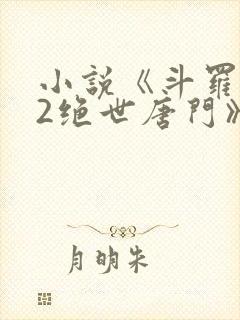 小説《斗羅
2绝世唐門》
月明朱